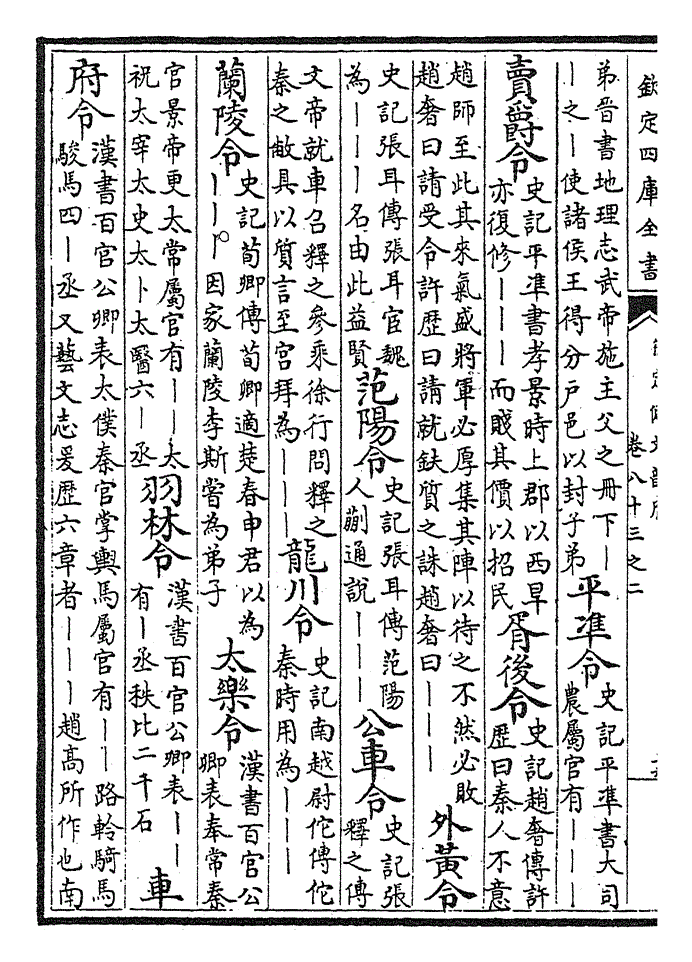 欽定四庫全書
卷八十三之二
弟晉書地理志武帝施主父之冊下｜
｜之｜使諸侯王得分戶邑以封子弟
平準令
史記平準書大司
農屬官有｜｜｜
賣爵令
史記平準書孝景時上郡以西旱
亦復修｜｜｜而賤其價以招民
胥後令
史記趙奢傳許
歷曰秦人不意
趙師至此其來氣盛將軍必厚集其陣以待之不然必敗
趙奢曰請受令許歷曰請就鈇質之誅趙奢曰｜｜｜
外黃令
史記張耳傳張耳宦魏
為｜｜｜名由此益賢
范陽令
史記張耳傳范陽
人蒯通說｜｜｜
公車令
史記張
釋之傳
文帝就車召釋之參乘徐行問釋之
秦之敝具以質言至宮拜為｜｜｜
龍川令
史記南越尉佗傳佗
秦時用為｜｜｜
蘭陵令
史記荀卿傳荀卿適楚春申君以為
｜｜｜因家蘭陵李斯嘗為弟子
太樂令
漢書百官公
卿表奉常秦
官景帝更太常屬官有｜｜太
祝太宰太史太卜太醫六｜丞
羽林令
漢書百官公卿表｜｜
有｜丞秩比二千石
車
府令
漢書百官公卿表太僕秦官掌輿馬屬官有｜｜路軨騎馬
駿馬四｜丞又藝文志爰歷六章者｜｜｜趙高所作也南